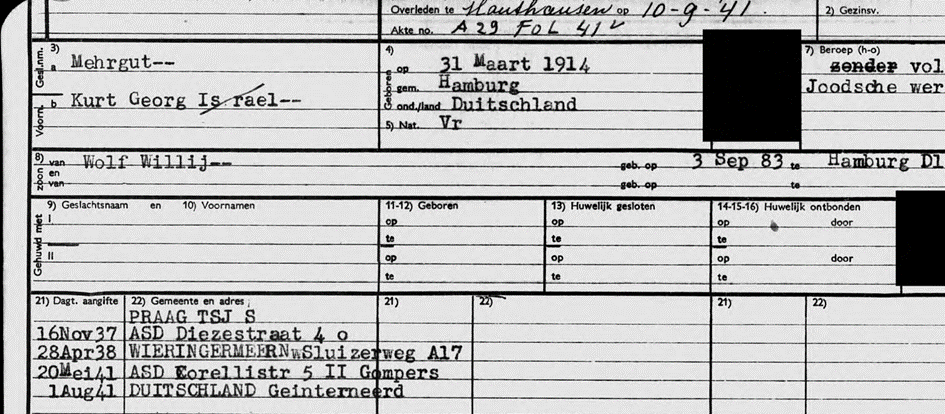 Overleden te Mauthausen op 10-9-'41. 2) Gezinsv.
Akte no. A 29 FOL 41v
3) Gesl.nm. a Mehrgut--
Voorn. b Kurt Georg Is rael--
4) Geboren op 31 Maart 1914
gem. Hamburg
ond./land Duitschland
5) Nat. Vr
7) Beroep (h-o)
zonder vol
Joodsche wer
8) zoon van Wolf Willij-- geb. op 3 Sep 83 te Hamburg Dl
en van geb. op te
Gehuwd met 9) Geslachtsnaam en 10) Voornamen 11-12) Geboren 13) Huwelijk gesloten 14-15-16) Huwelijk ontbonden
I op op op door
te te te
II op op op door
te te te
21) Dagt. aangifte 22) Gemeente en adres 21) 22) 21) 22)
PRAAG TSJ S
16Nov37 ASD Diezestraat 4 o
28Apr38 WIERINGERMEER NwSluizerweg A17
20Mei41 ASD Corellistr 5 II Gompers
1Aug41 DUITSCHLAND Geinterneerd